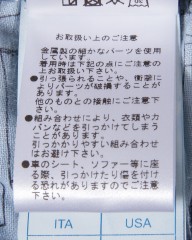 お取扱い上のご注意
金属製の細かなパーツを使用
しています。
着用時は下記の点にご注意の
上お取扱い下さい。
●引っ張られることや、衝撃に
よりパーツが破損することが
あります。
他のものとの接触にご注意下
さい。
●組み合わせにより、衣類やカ
バンなどを引っかけてしまう
ことがあります。
引っかかりやすい組み合わせ
はお避け下さい。
●車のシート、ソファー等に座
る際、引っかけたり傷を付け
る恐れがありますのでご注意
下さい。
ITA
USA